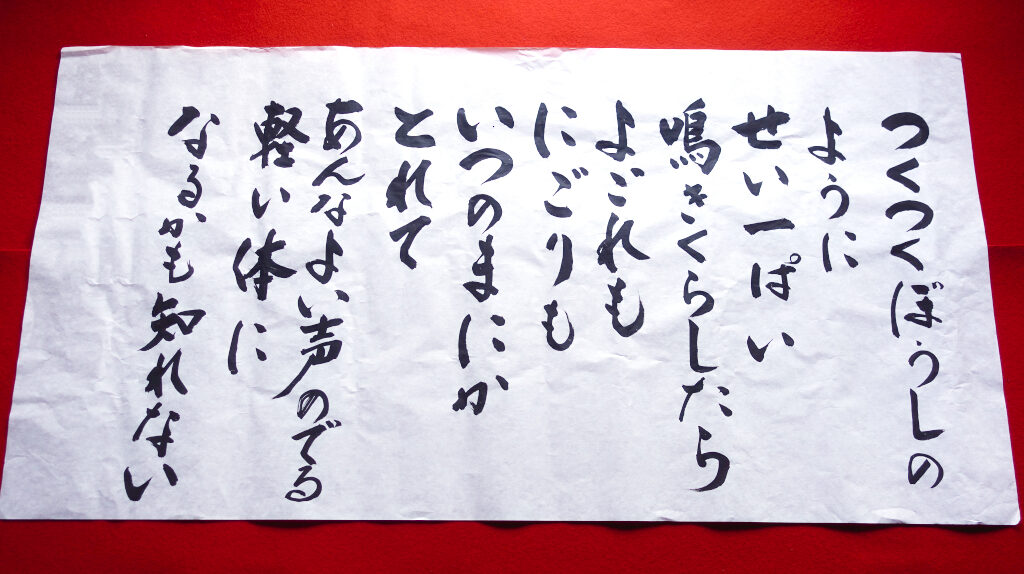 つくつくぼうしの
ように
せい一ぱい
鳴きくらしたら
よごれも
にごりも
いつのまにか
とれて
あんなよい声のでる
軽い体に
なるかも知れない